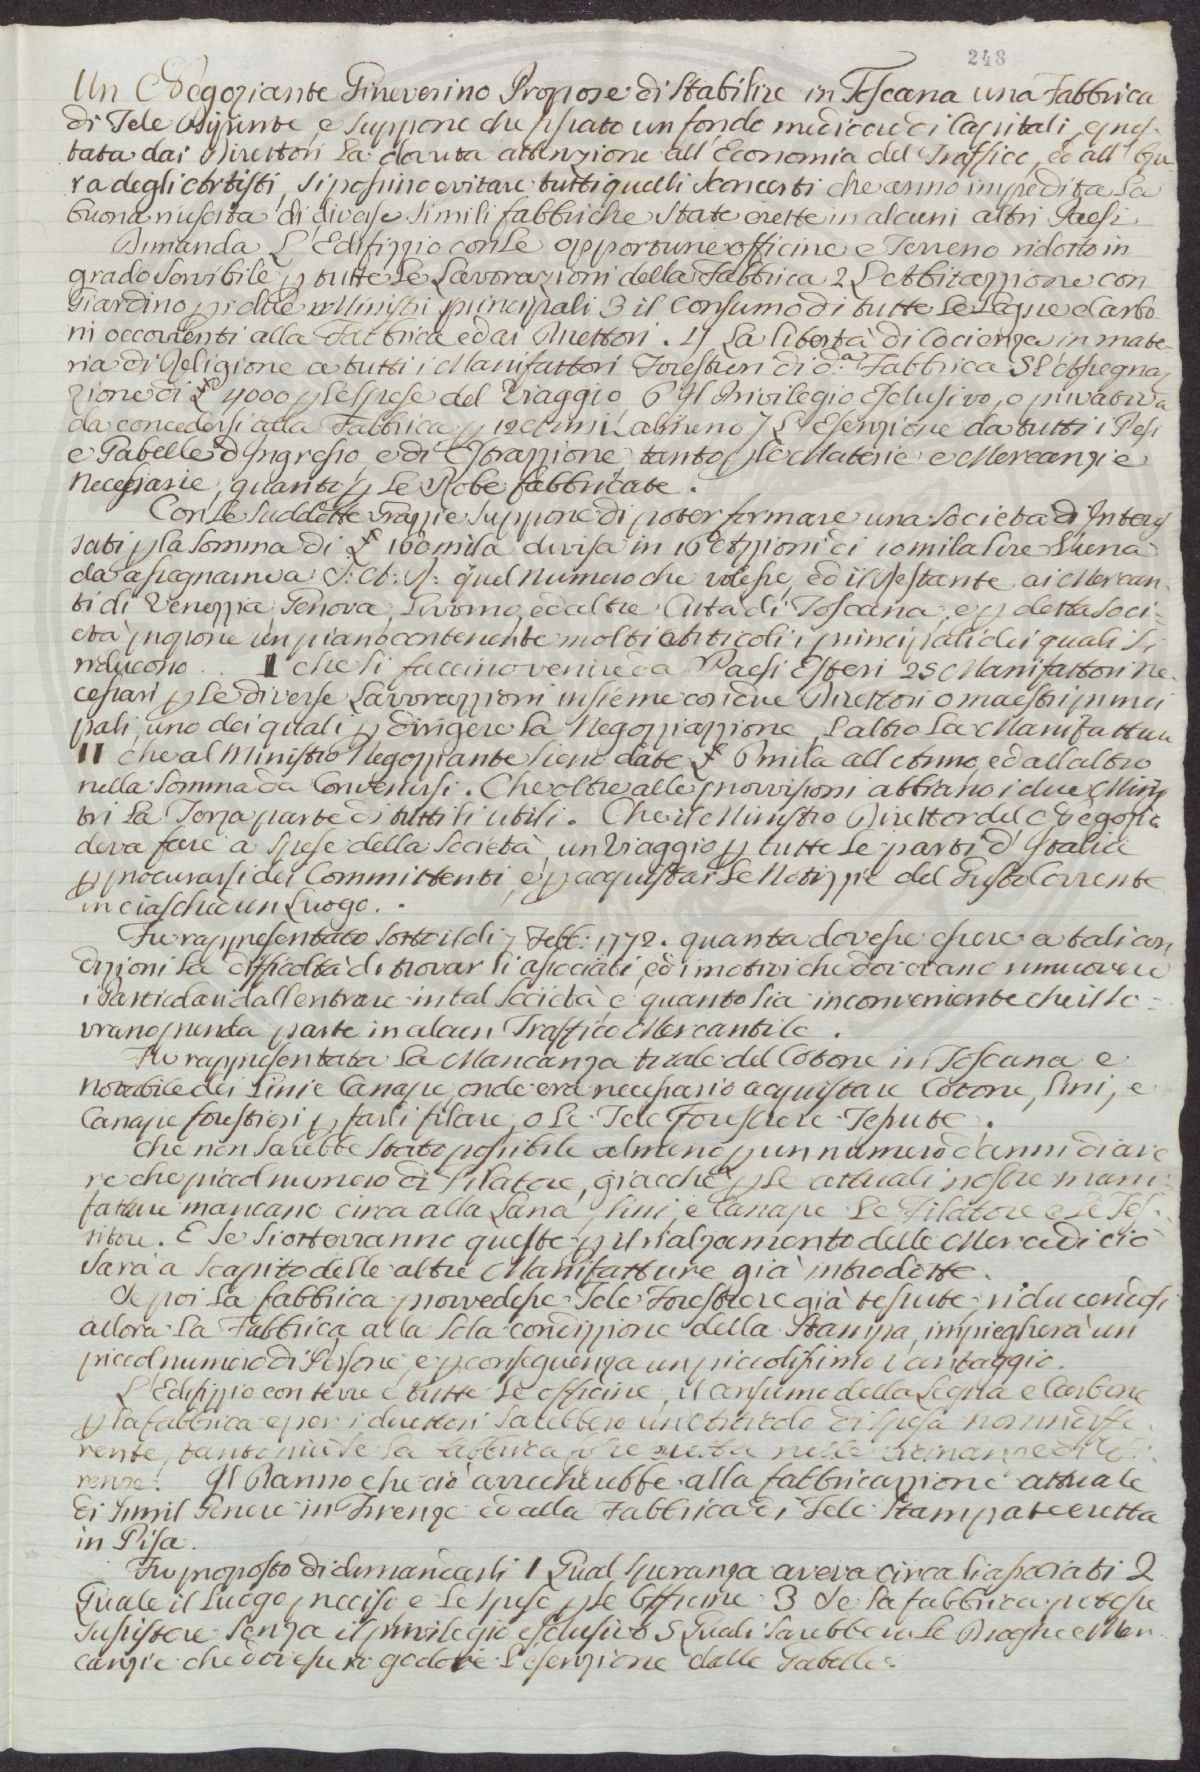 248
Un Negoziante Gineverino Propose di stabilire in Toscana una Fabbrica
di Tele dipinte, e suppone che fissato un fondo mediocre di Capitali, e pres-
tata dai Direttori la dovuta attenzione all'Economia del Traffico, ed all'Ope-
ra degli Artisti, si possino evitare tutti quelli sconcerti che anno impedita la
buona riuscita di diverse simili fabbriche state erette in alcuni altri Paesi
Dimanda L'Edifizzio con le opportune officine e Terreno ridotto in
grado servibile p tutte le Lavorazzioni della Fabbrica 2 L'Abitazzione con
Giardino p i due Ministri principali 3 il Consumo di tutte le Legne e Carbo
ni occorrenti alla Fabbrica ed ai Direttori. 4 La libertà di Cocienza in mate-
ria di Religione a tutti i Manifattori Forestieri di d.a Fabbrica 5 L'Assegnaz
zione di £ 4000 p le spese del Viaggio 6 Il Privilegio esclusivo, o privativa
da concedersi alla Fabbrica p 12 Anni almeno 7 L'Esenzione da tutti i Pesi
e Gabelle d'Ingresso e di Estrazzione tanto p le Materie e Mercanzie
necessarie, quanto p le Robe fabbricate.
Con le suddette Grazzie suppone di poter formare una Società di Interes
sati p la somma di £ 160 mila divisa in 16 Azzioni di 10 mila lire l'una
da assegnarne a S: A: R: quel numero che volesse, ed il restante ai Mercan-
ti di Venezzia Genova, Livorno, ed altre Città di Toscana, e p detta Soci-
età propone un piano contenente molti Articoli i principali dei quali si
riducono I che si faccino venire da Paesi Esteri 25 Manifattori ne-
cessari p le diverse Lavorazzioni insieme con due Direttori o maestri princi
pali, uno dei quali p dirigere la Negozziazzione, l'altro la Manifattura
II che al Ministro Negozziante sieno date £ 6 mila all'Anno, ed all'altro
nella somma da Convenirsi. Che oltre alle provvisioni abbiano i due Minis
tri la Terza parte di tutti li utili. Che il Ministro Direttor del Negozio
deva fare a spese della Società un Viaggio p tutte le parti d'Italia
p procurarsi dei Committenti, e p acquistar le Notizzie del Gusto Corrente
in ciaschedun Luogo.
Fu rappresentato sotto il dì 7 Febb: 1772. quanta dovesse essere a tali con
dizioni la difficoltà di trovar li associati, ed i motivi che dovevano rimuovere
i Particolari dall'entrare in tal Società, e quanto sia inconveniente che il So-
vrano prenda parte in alcun Traffico Mercantile.
Fu rappresentata la Mancanza totale del Cotone in Toscana e
notabile dei Lini e Canape, onde era necessario acquistare Cotone, Lini, e
Canape forestieri p farli filare, o le Tele Forestiere Tessute.
Che non sarebbe stato possibile almeno p un numero d'anni di ave
re che piccol numero di Filatore, giacchè p le attuali nostre mani-
fatture mancano circa alla Lana, Lini, e Canape le Filatore e le Tes-
sitore. E se si otterranno queste p il rialzamento delle Mercedi ciò
sarà a scapito delle altre Manifatture già introdotte.
Se poi la fabbrica provvedesse Tele Forestiere già tessute, riducendosi
allora la Fabbrica alla sola condizzione della Stampa, impiegherà un
piccol numero di Persone, e p conseguenza un piccolissimo vantaggio.
L'Edifizzio con terre e tutte le officine, il consumo della Legna e Carbone
p la fabbrica e per i direttori sarebbero un articolo di spesa non indiffe-
rente, tanto più se la fabbrica fosse eretta nelle vicinanze di Fi-
renze. Il Danno che ciò arrecherebbe alla fabbricazzione attuale
di simil Genere in Firenze ed alla Fabbrica di Tele stampate eretta
in Pisa.
Fu proposto di dimandarli 1 Qual speranza aveva circa li associati 2
Quale il Luogo preciso e le spese p le Officine 3 Se la fabbrica potesse
sussistere senza il privilegio esclusivo 5 Quali sarebbero le Droghe e Mer-
canzie che dovessero godere l'esenzione dalle Gabelle.